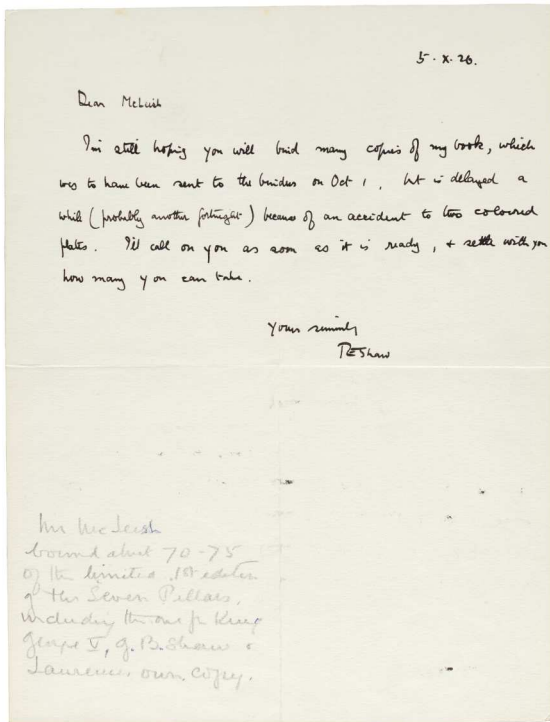 5·X·26.
Dear McLeish
I'm still hoping you will bind many copies of my book, which
was to have been sent to the binders on Oct 1, but is delayed a
while (probably another fortnight) because of an accident to two coloured
plates. I'll call on you as soon as it is ready, + settle with you
how many you can take.
Yours sincerely
TEShaw
Mr McLeish
bound about 70-75
of the limited 1st edition
of the Seven Pillars,
including the one for King
George V, G.B.Shaw &
Laurence's own copy.